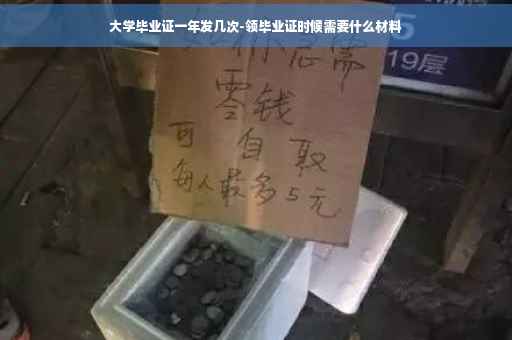 大学毕业证一年发几次-领毕业证时候需要什么材料
你急需
零钱
可自取
每人最多5元
5
19层